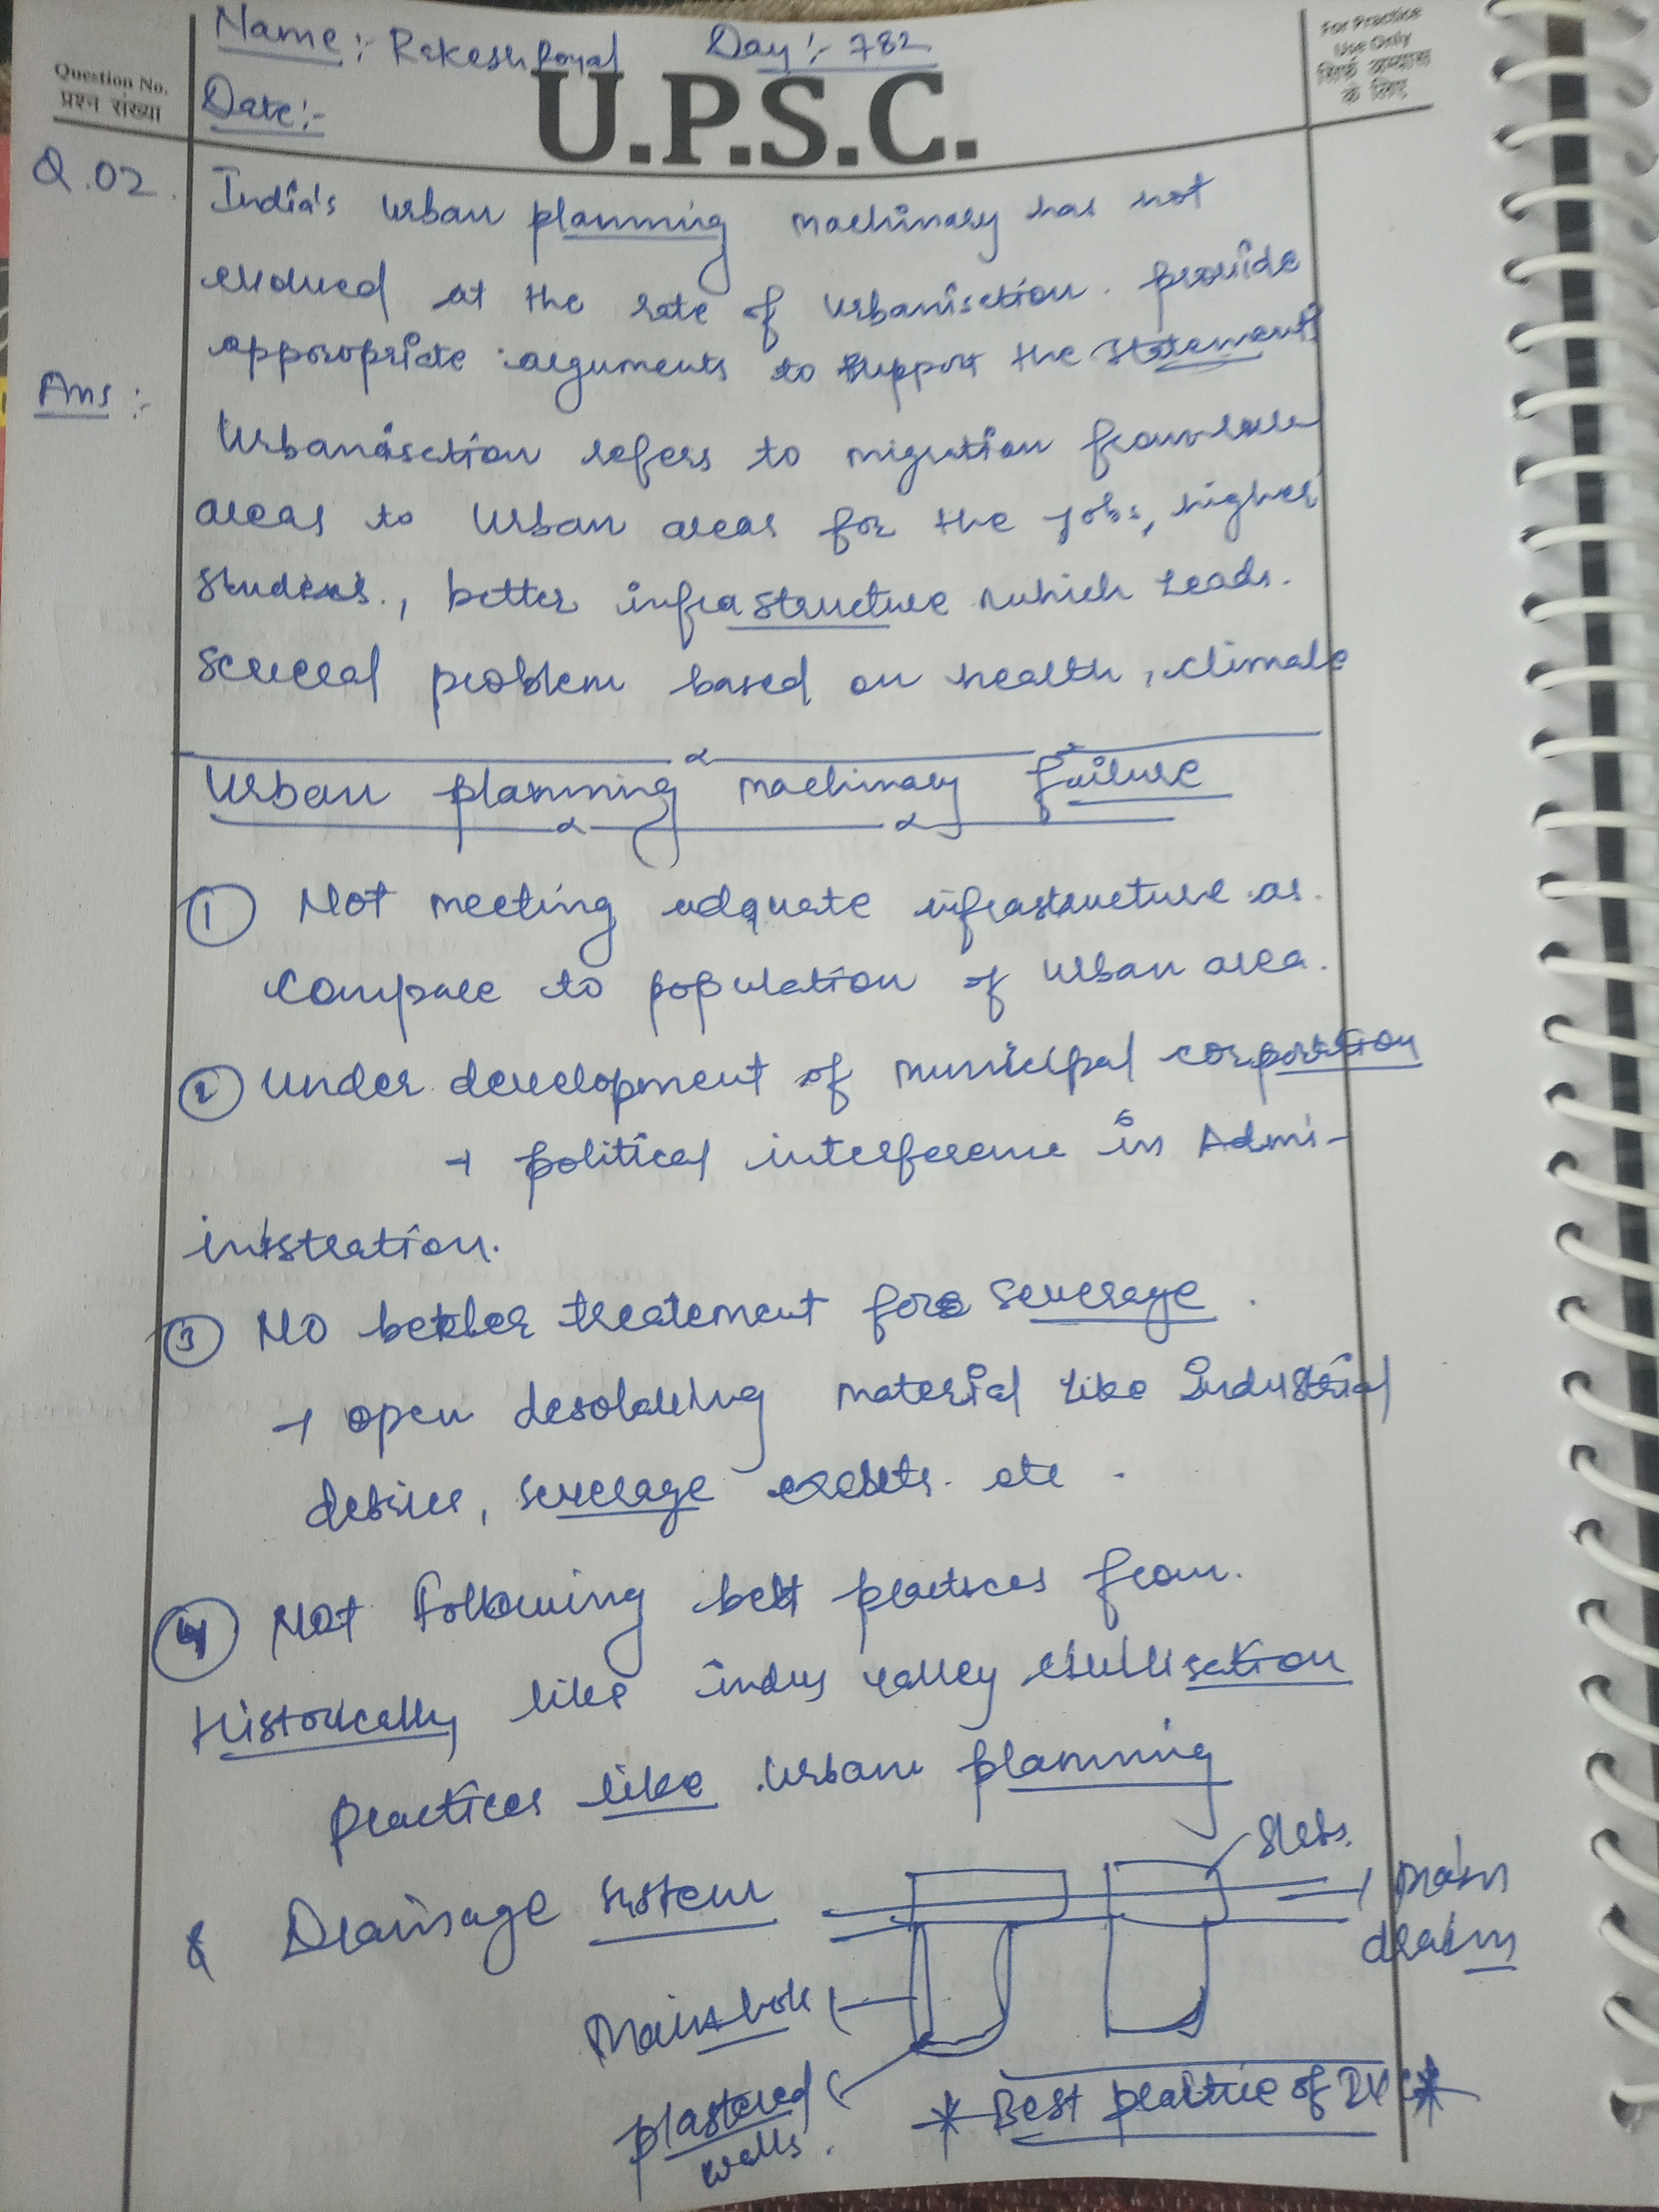 Name:- Rakesh Royal Day:- 782
For Practice
Use Only
सिर्फ अभ्यास
के लिए
Question No.
प्रश्न संख्या
Date:-
U.P.S.C.
Q.02. India's urban planning machinary has not
evolved at the rate of urbanisation. provide
appropriate arguments to support the statement
Ans:- Urbanisation refers to migration from
areas to urban areas for the jobs, higher
studies, better infrastructure which leads.
several problem based on health, climate
Urban planning machinary failure
① Not meeting adquate infrastructure as.
compare to population of urban area.
② under development of municipal corporation
→ political interference in Admi-
inistration.
③ No better treatement for severage.
→ open material like industrial
severage etc.
④ Not following best practices from.
Historically like indus valley civilisation
practices like urban planning
& Drainage system
Slabs.
→ main
drain
plastered
walls.
* Best practice of *